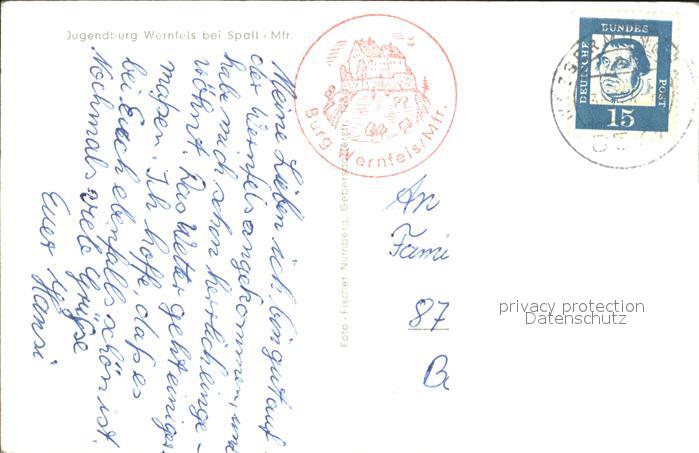 Jugendburg Wernfels bei Spalt/Mfr.
Burg Wernfels/Mfr.
DEUTSCHE
BUNDES
POST
15
Meine Lieben ich bin gut auf
der Wernfels angekommen, und
habe mich schon herrlich einge-
wöhnt. Das Wetter geht einiger-
maßen. Ich hoffe, daß es
bei Euch ebenfalls schön ist.
Nochmals viele Grüße
Euer Hansi
Foto-Fischer Nürnberg,
An
Fami
87
privacy protection
Datenschutz